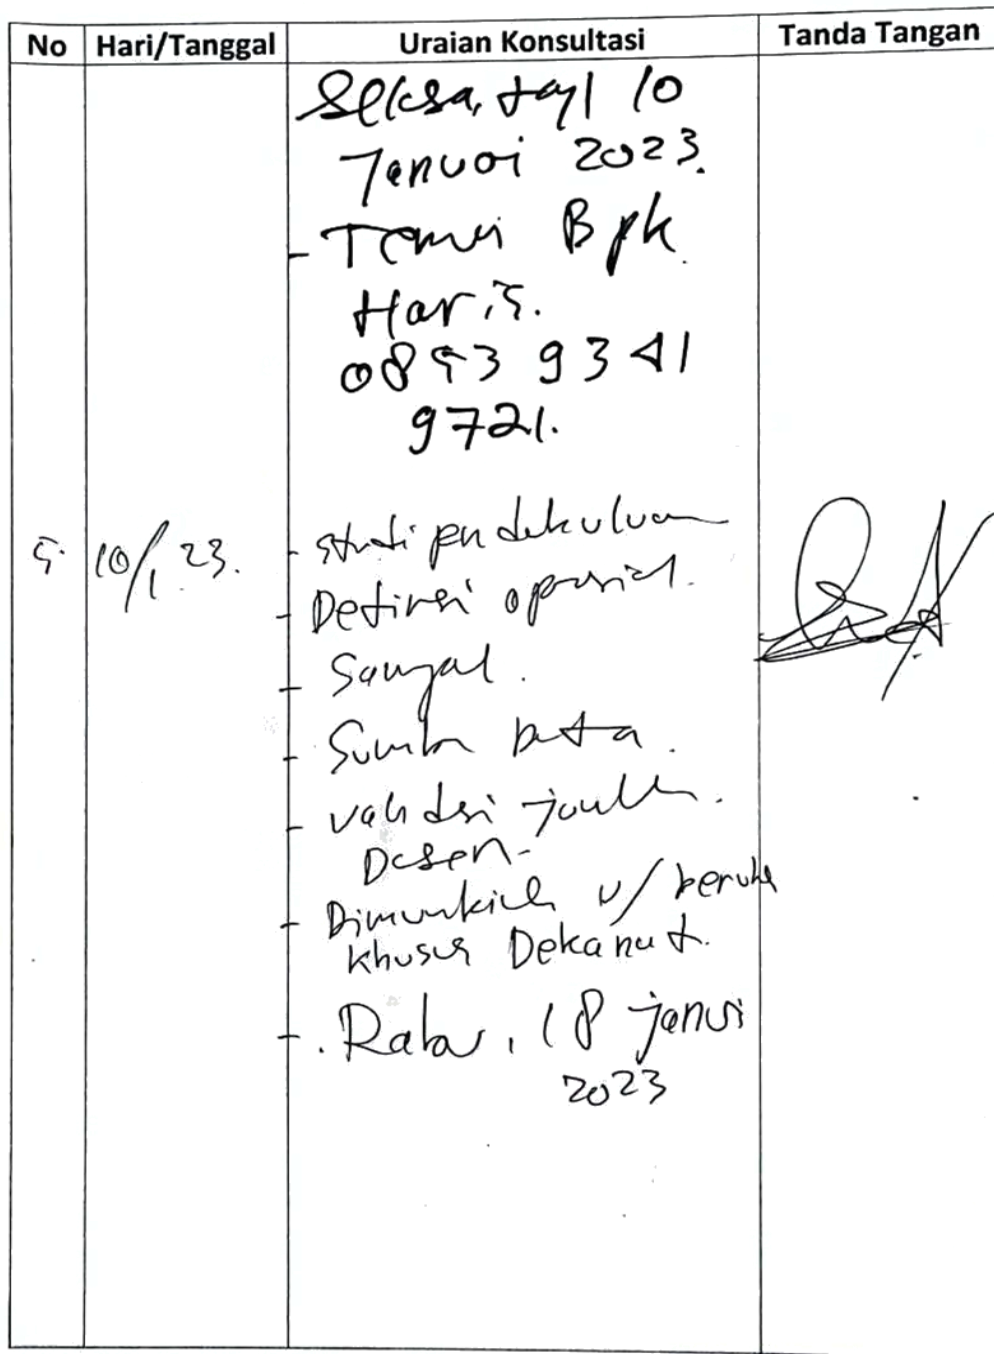 No Hari/Tanggal Uraian Konsultasi Tanda Tangan
Selasa, tgl 10
Januari 2023.
- Temui Bpk
Haris.
0853 9341
9721.
5. 10/1 23. - studi pendahuluan
- Definisi oprasional.
- Sampal.
- Sumber Data.
- validasi jumlah
Dosen-
- u/
khusus Dekanat.
- . Rabu, 18 januari
2023